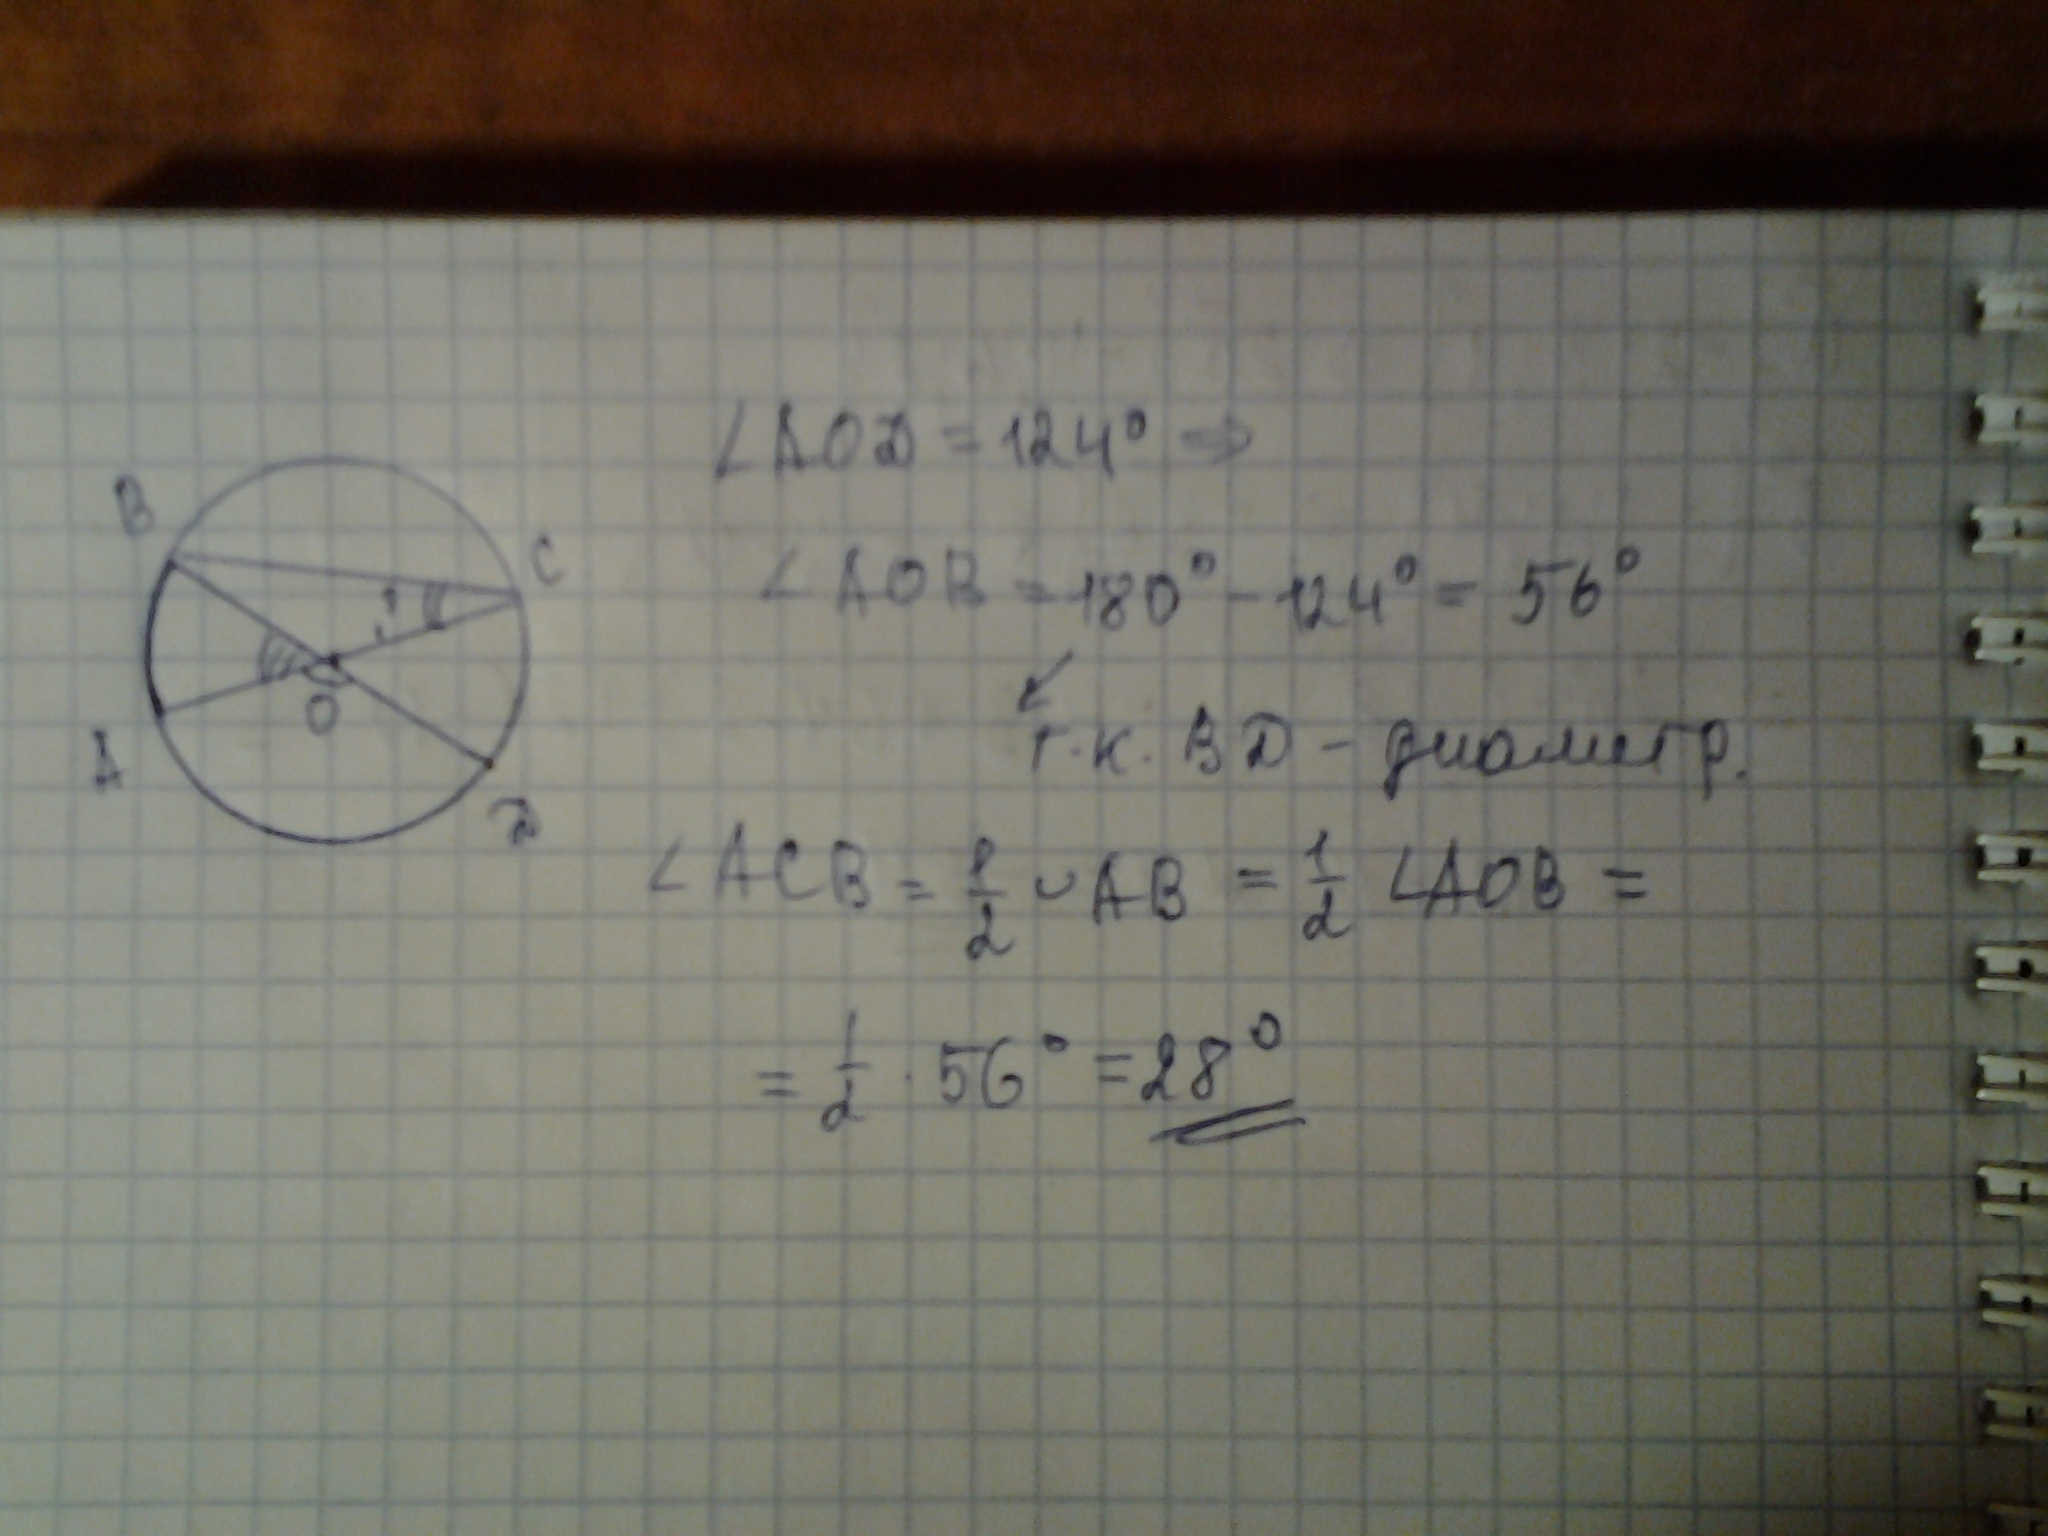 B
C
O
A
D
?
∠AOD = 124° ⇒
∠AOB = 180° - 124° = 56°
т.к. BD - диаметр.
∠ACB = 1/2 ◡AB = 1/2 ∠AOB =
= 1/2 · 56° = 28°